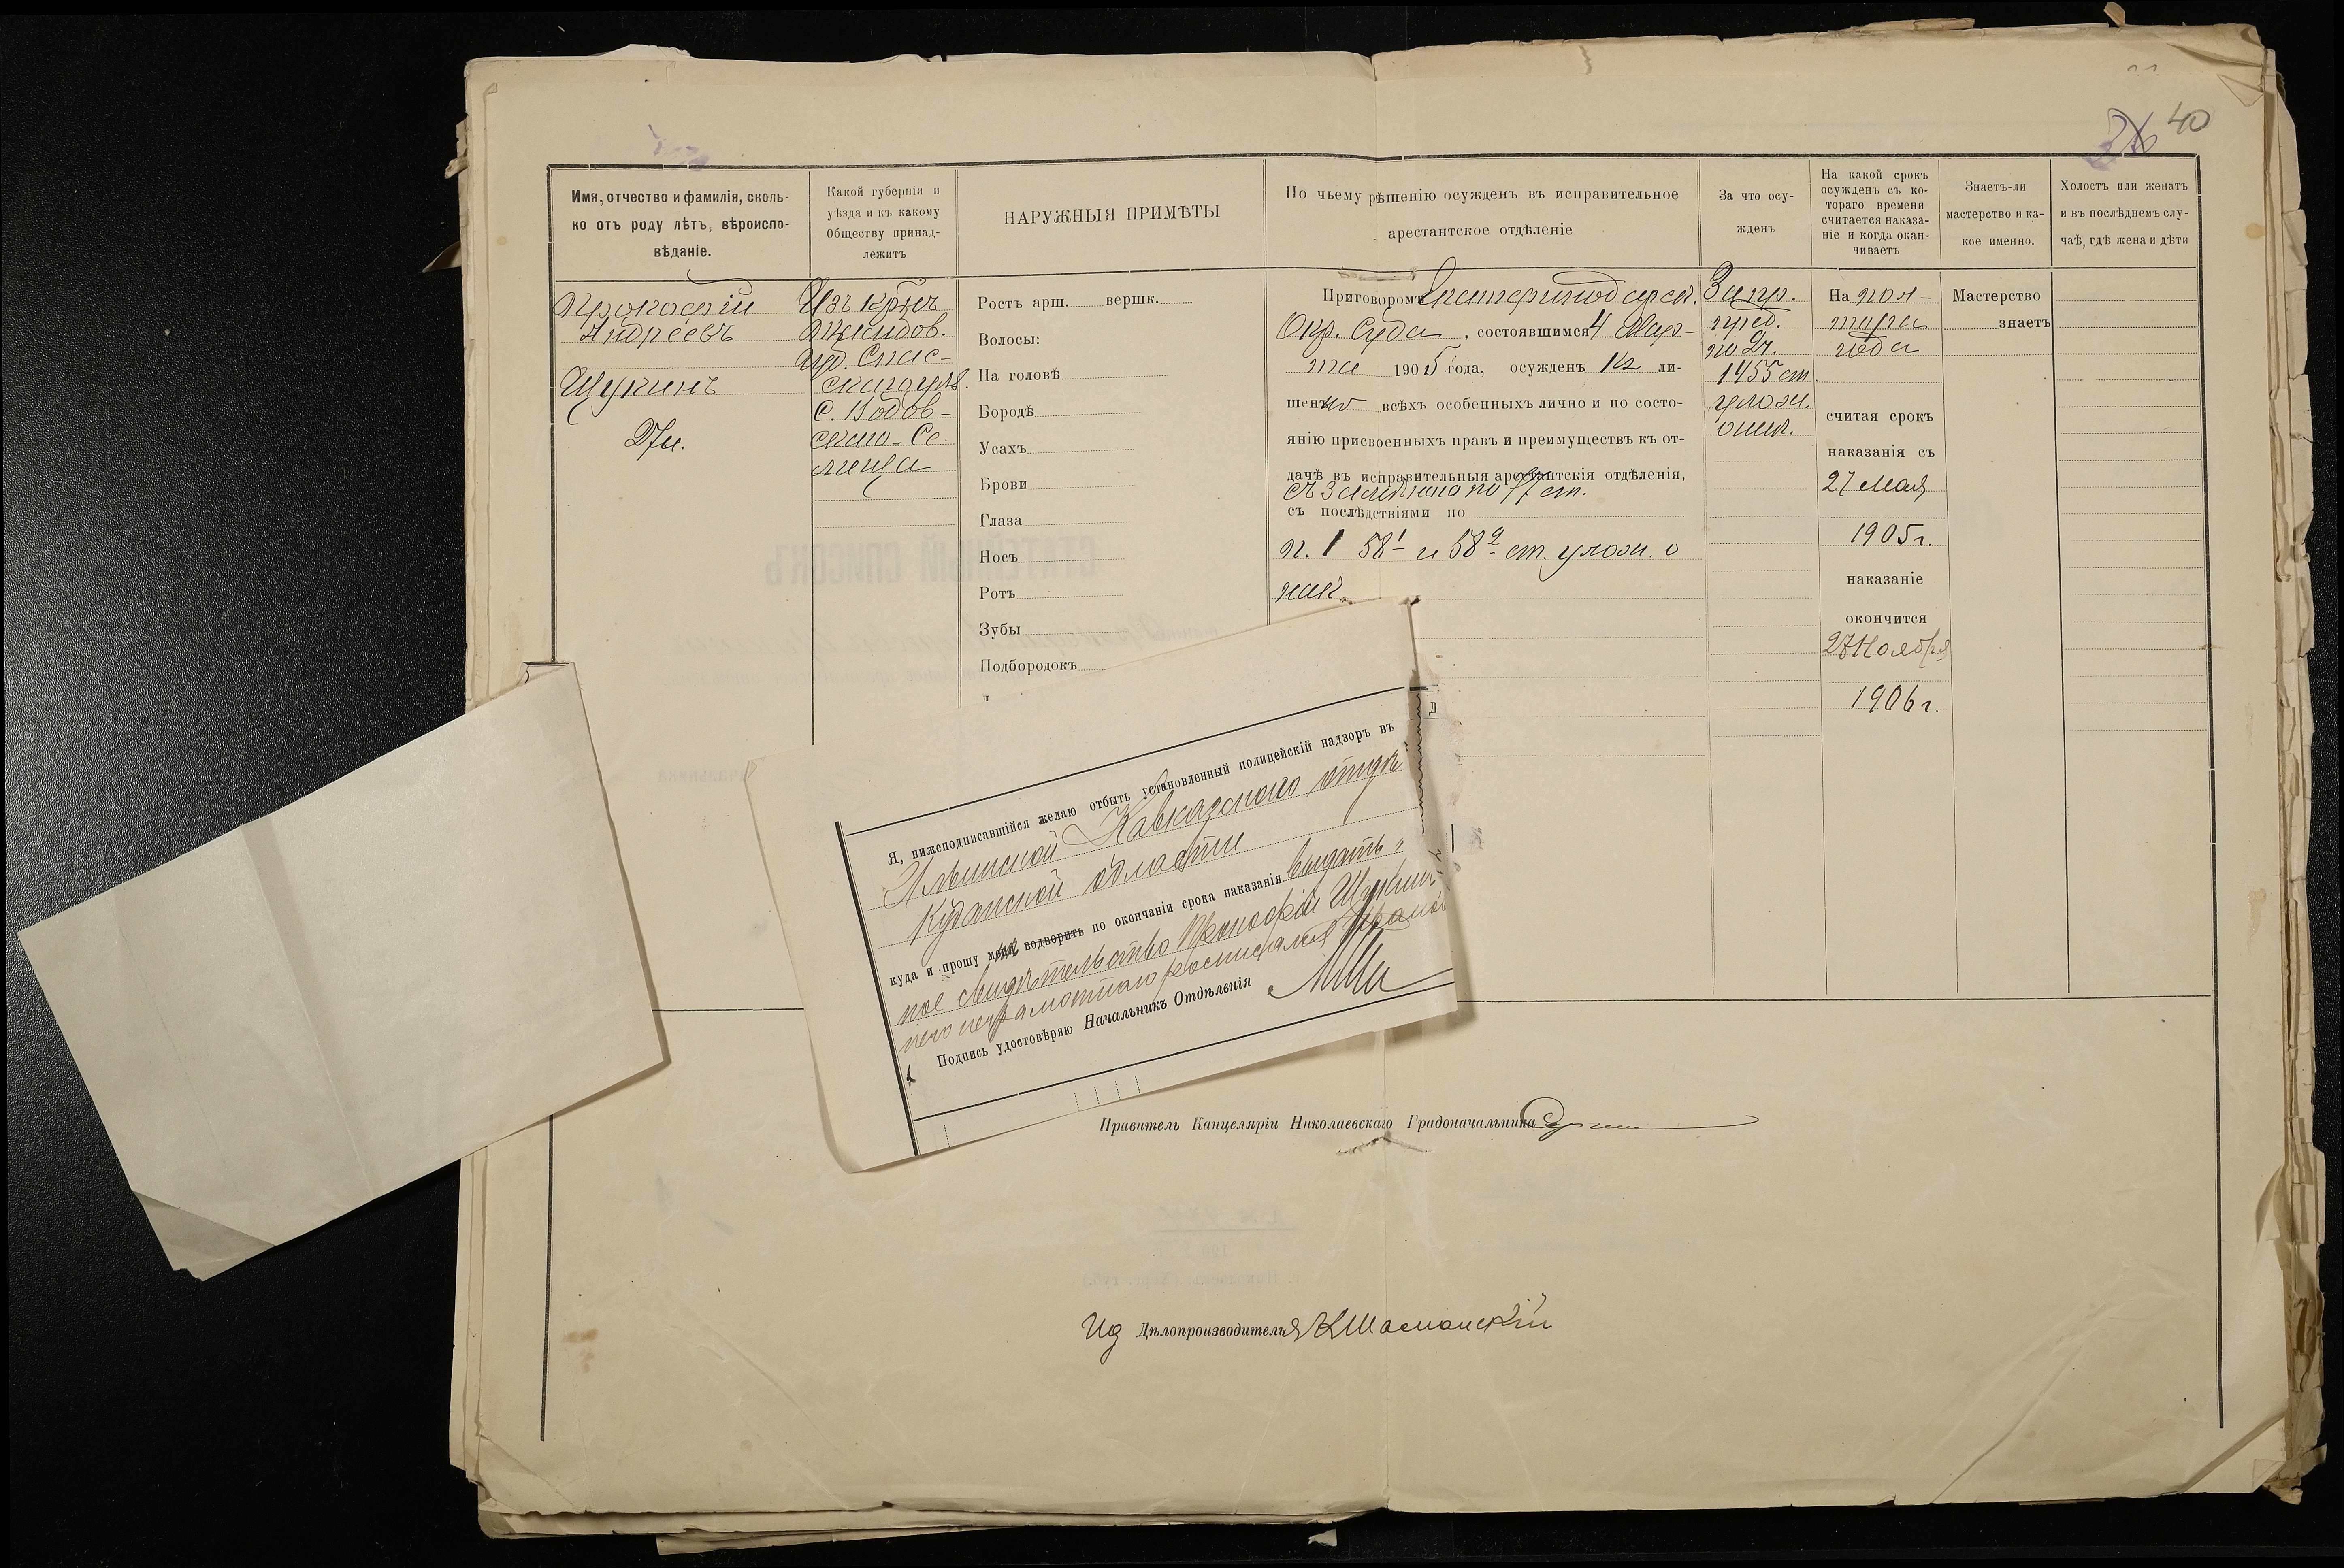 40
Имя, отчество и фамилія, сколь-
ко отъ роду лѣтъ, вѣроиспо-
вѣданіе.
Какой губерніи и
уѣзда и къ какому
Обществу принад-
лежитъ
НАРУЖНЫЯ ПРИМѢТЫ
По чьему рѣшенію осужденъ въ исправительное
арестантское отдѣленіе
За что осу-
жденъ
На какой срокъ
осужденъ съ ко-
тораго времени
считается наказа-
ніе и когда окан-
чиваетъ
Знаетъ-ли
мастерство и ка-
кое именно.
Холостъ или женатъ
и въ послѣднемъ слу-
чаѣ, гдѣ жена и дѣти
Прокофій
Андреевъ
Щукинъ
27 л.
Изъ кр.
губ. Спас-
скаго у.
с.
Ростъ арш. вершк.
Волосы:
На головѣ
Бородѣ
Усахъ
Брови
Глаза
Носъ
Ротъ
Зубы
Подбородокъ
Приговоромъ Екатеринодарск.
Окр. Суда, состоявшимся 4 Мар-
та 1905 года, осужденъ къ ли-
шенію всѣхъ особенныхъ лично и по состо-
янію присвоенныхъ правъ и преимуществъ къ от-
дачѣ въ исправительныя арестантскія отдѣленія,
съ замѣною по 77 ст.
съ послѣдствіями по
п. 1 58¹ и 58² ст. улож. о
нак.
За пр.
пред.
по 2 ч.
1455 ст.
улож.
о нак.
На пол-
тора
года
считая срокъ
наказанія съ
27 Мая
1905 г.
наказаніе
окончится
27 Ноября
1906 г.
Мастерство
знаетъ
СТАТЕЙНЫЙ СПИСОКЪ
Я, нижеподписавшійся желаю отбыть установленный полицейскій надзоръ въ
Ильинской Кавказскаго отдѣ
Кубанской области
куда и прошу водворить по окончаніи срока наказанія выдать
ное свидѣтельство Прокофій Щукинъ
него неграмотнаго росписался
Подпись удостовѣряю Начальникъ Отдѣленія
Правитель Канцеляріи Николаевскаго Градоначальника
Ид Дѣлопроизводителя